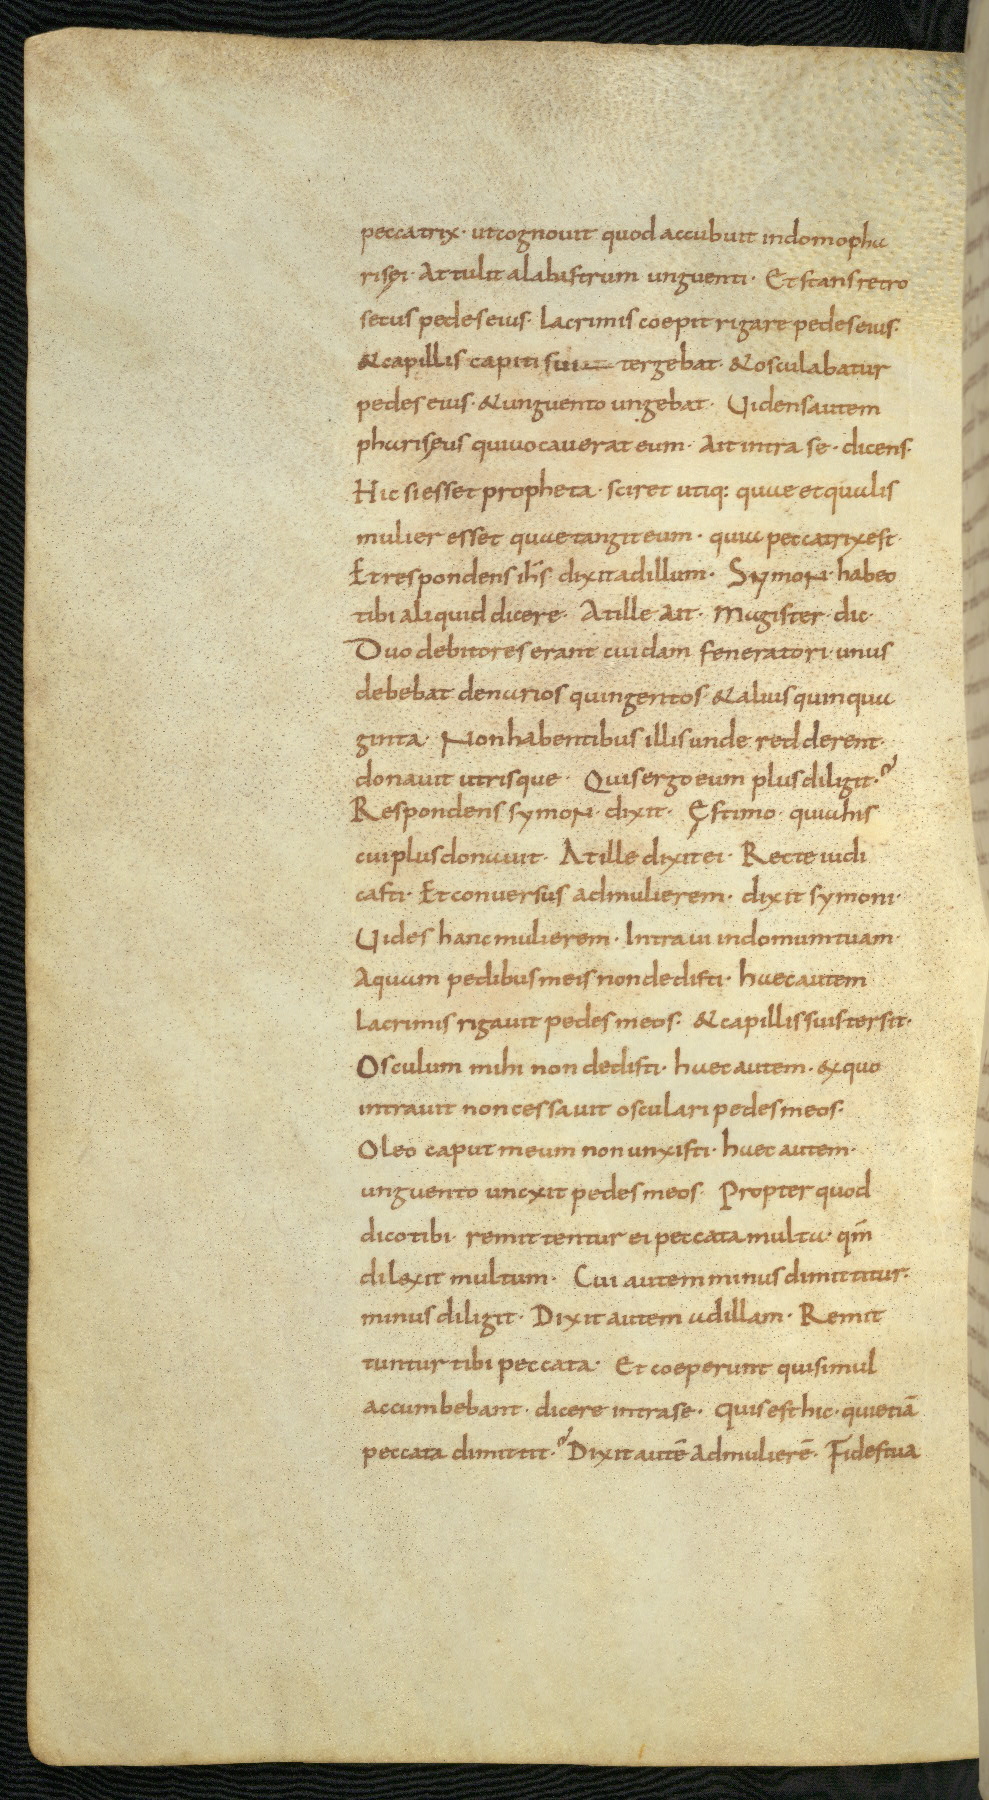 peccatrix· ut cognouit quod accubuit in domo pha
risęi· Attulit alabastrum unguenti· Et stans retro
secus pedes eius· lacrimis coepit rigare pedes eius·
& capillis capiti sui tergebat· & osculabatur
pedes eius· & unguento ungebat· Uidens autem
pharisęus qui uocauerat eum· Ait intra se· dicens·
Hic si esset propheta· sciret utiq: quae et qualis
mulier esset quae tangit eum· quia peccatrix est·
Et respondens ih̄s dixit ad illum· Symon· habeo
tibi aliquid dicere· At ille ait· Magister dic·
Duo debitores erant cuidam feneratori· unus
debebat denarios quingentos· & alius quinqua
ginta· Non habentibus illis unde redderent·
donauit utrisque· Quis ergo eum plus diligit·?
Respondens symon· dixit· Ęstimo· quia his
cui plus donauit· At ille dixit ei· Recte iudi
casti· Et conuersus ad mulierem· dixit symoni·
Uides hanc mulierem· Intraui in domum tuam·
Aquam pedibus meis non dedisti· haec autem
lacrimis rigauit pedes meos· & capillis suis tersit·
Osculum mihi non dedisti· haec autem· ex quo
intrauit non cessauit osculari pedes meos·
Oleo caput meum non unxisti· haec autem·
unguento uncxit pedes meos· Propter quod
dico tibi· remittentur ei peccata multa· qm̄
dilexit multum· Cui autem minus dimittitur·
minus diligit· Dixit autem ad illam· Remit
tuntur tibi peccata· Et coeperunt qui simul
accumbebant· dicere intra se· Quis est hic· qui etiā
peccata dimittit·? Dixit autē ad mulierē· Fides tua